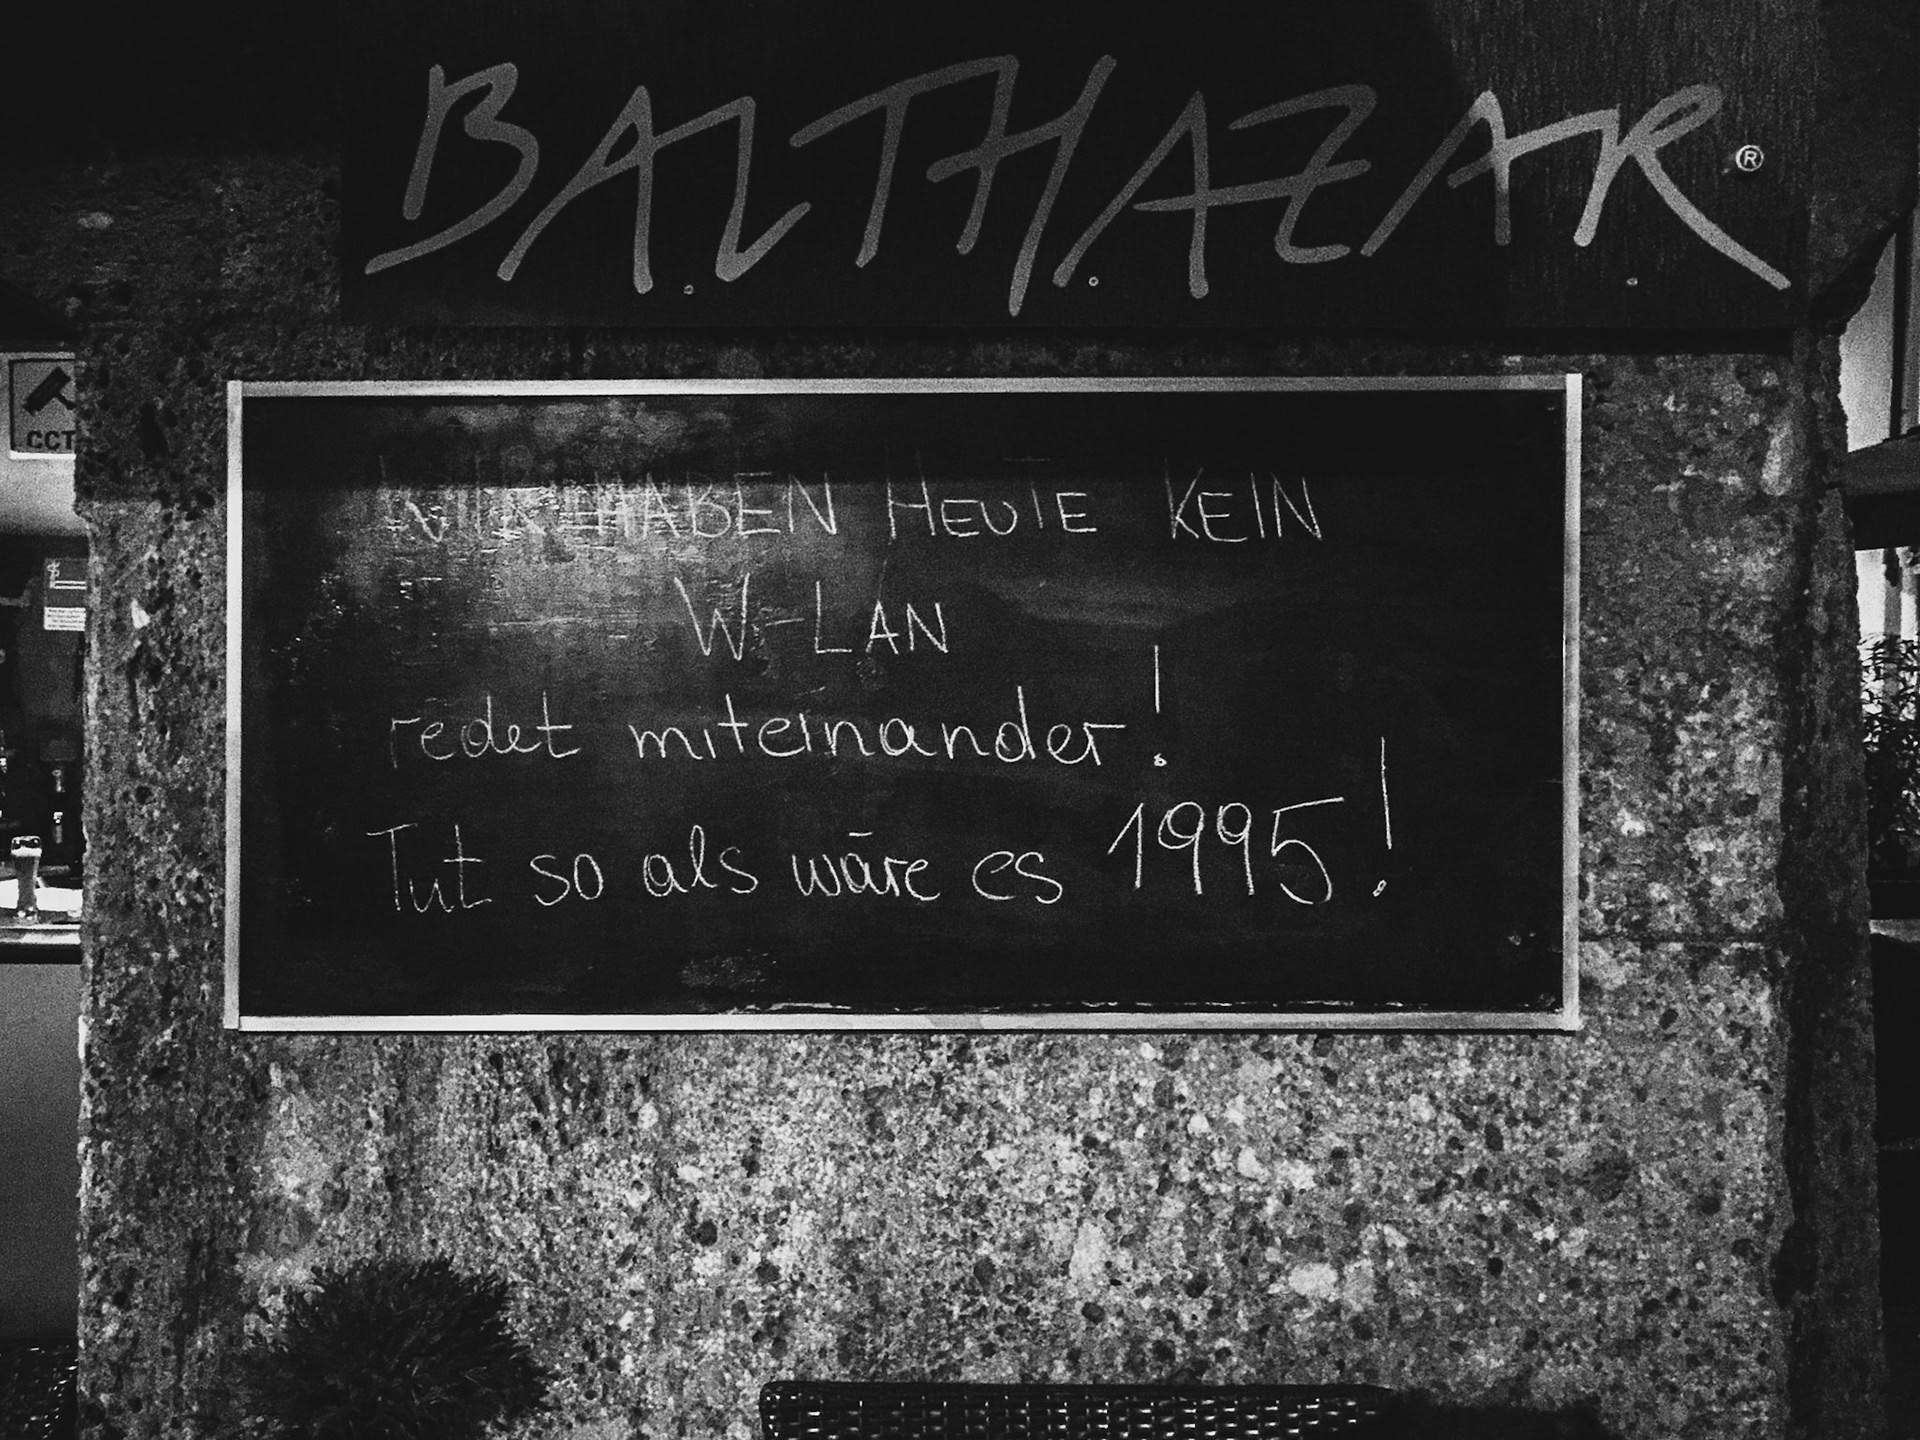 BALTHAZAR®
CCT
WIR HABEN HEUTE KEIN
W-LAN
redet miteinander!
Tut so als wäre es 1995!